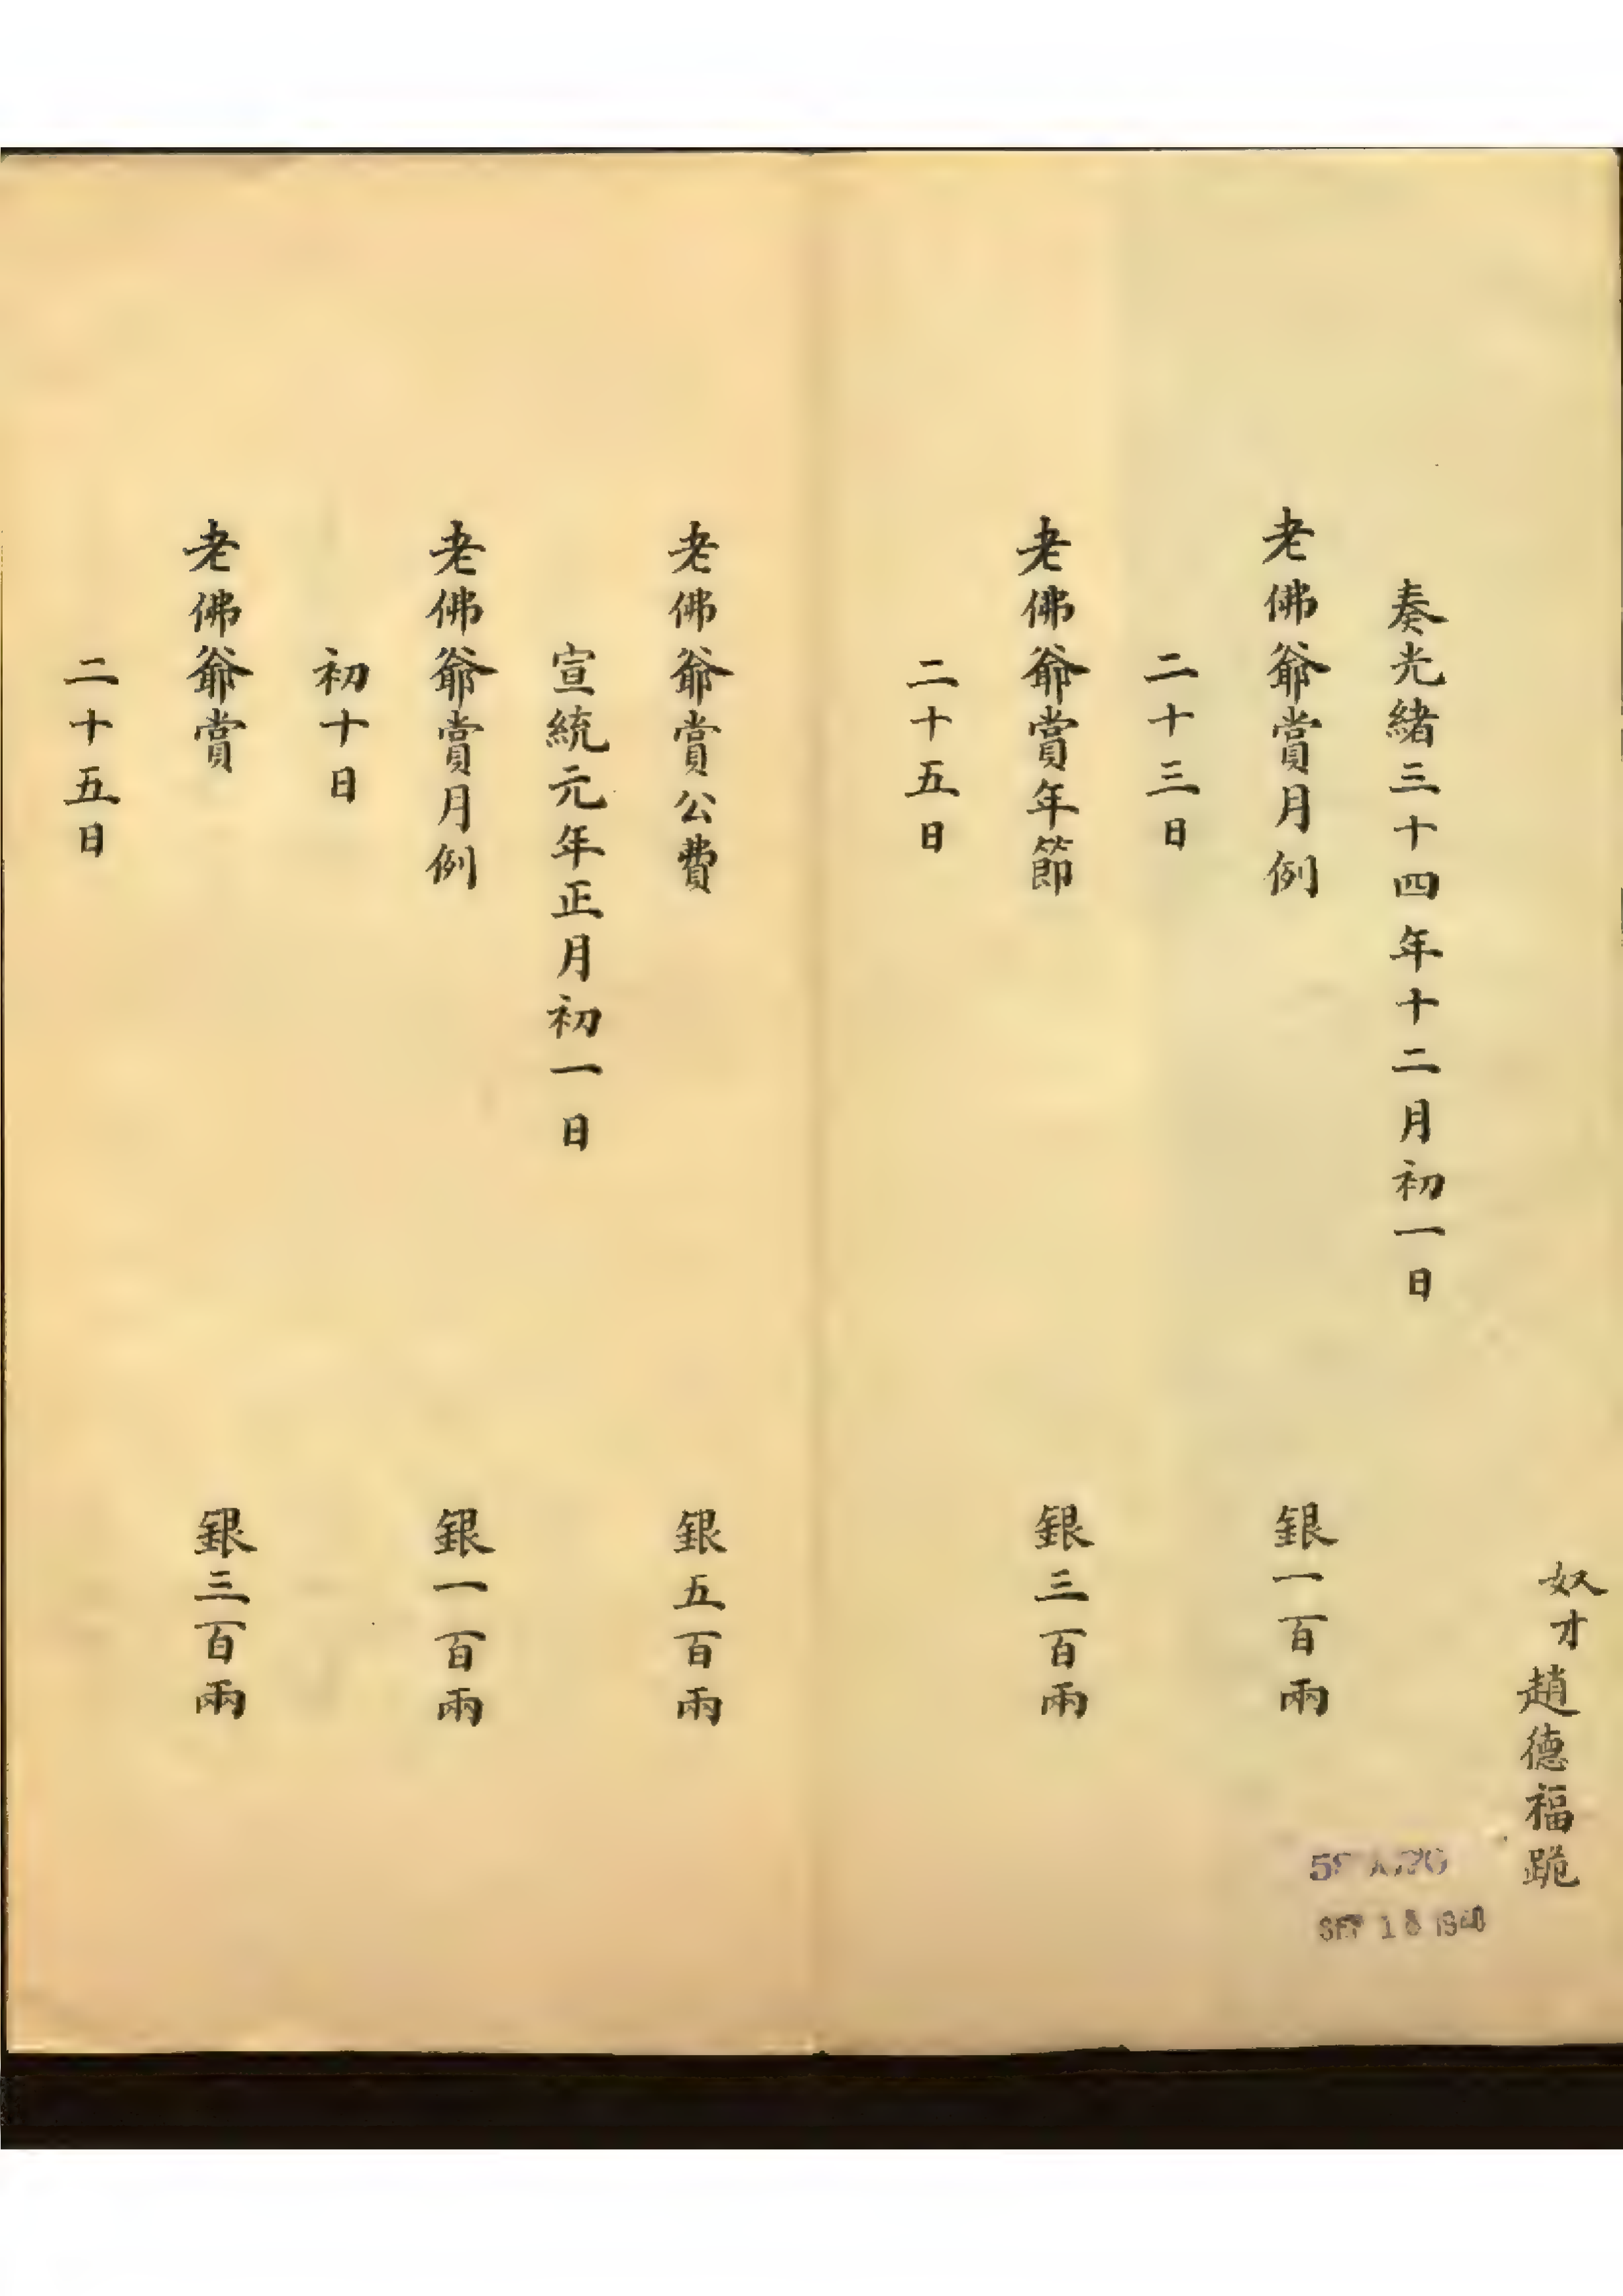 奴才趙德福跪
奏光緒三十四年十二月初一日
老佛爺賞月例 銀一百兩
二十三日
老佛爺賞年節 銀三百兩
二十五日
老佛爺賞公費 銀五百兩
宣統元年正月初一日
老佛爺賞月例 銀一百兩
初十日
老佛爺賞 銀三百兩
二十五日
SEP 18